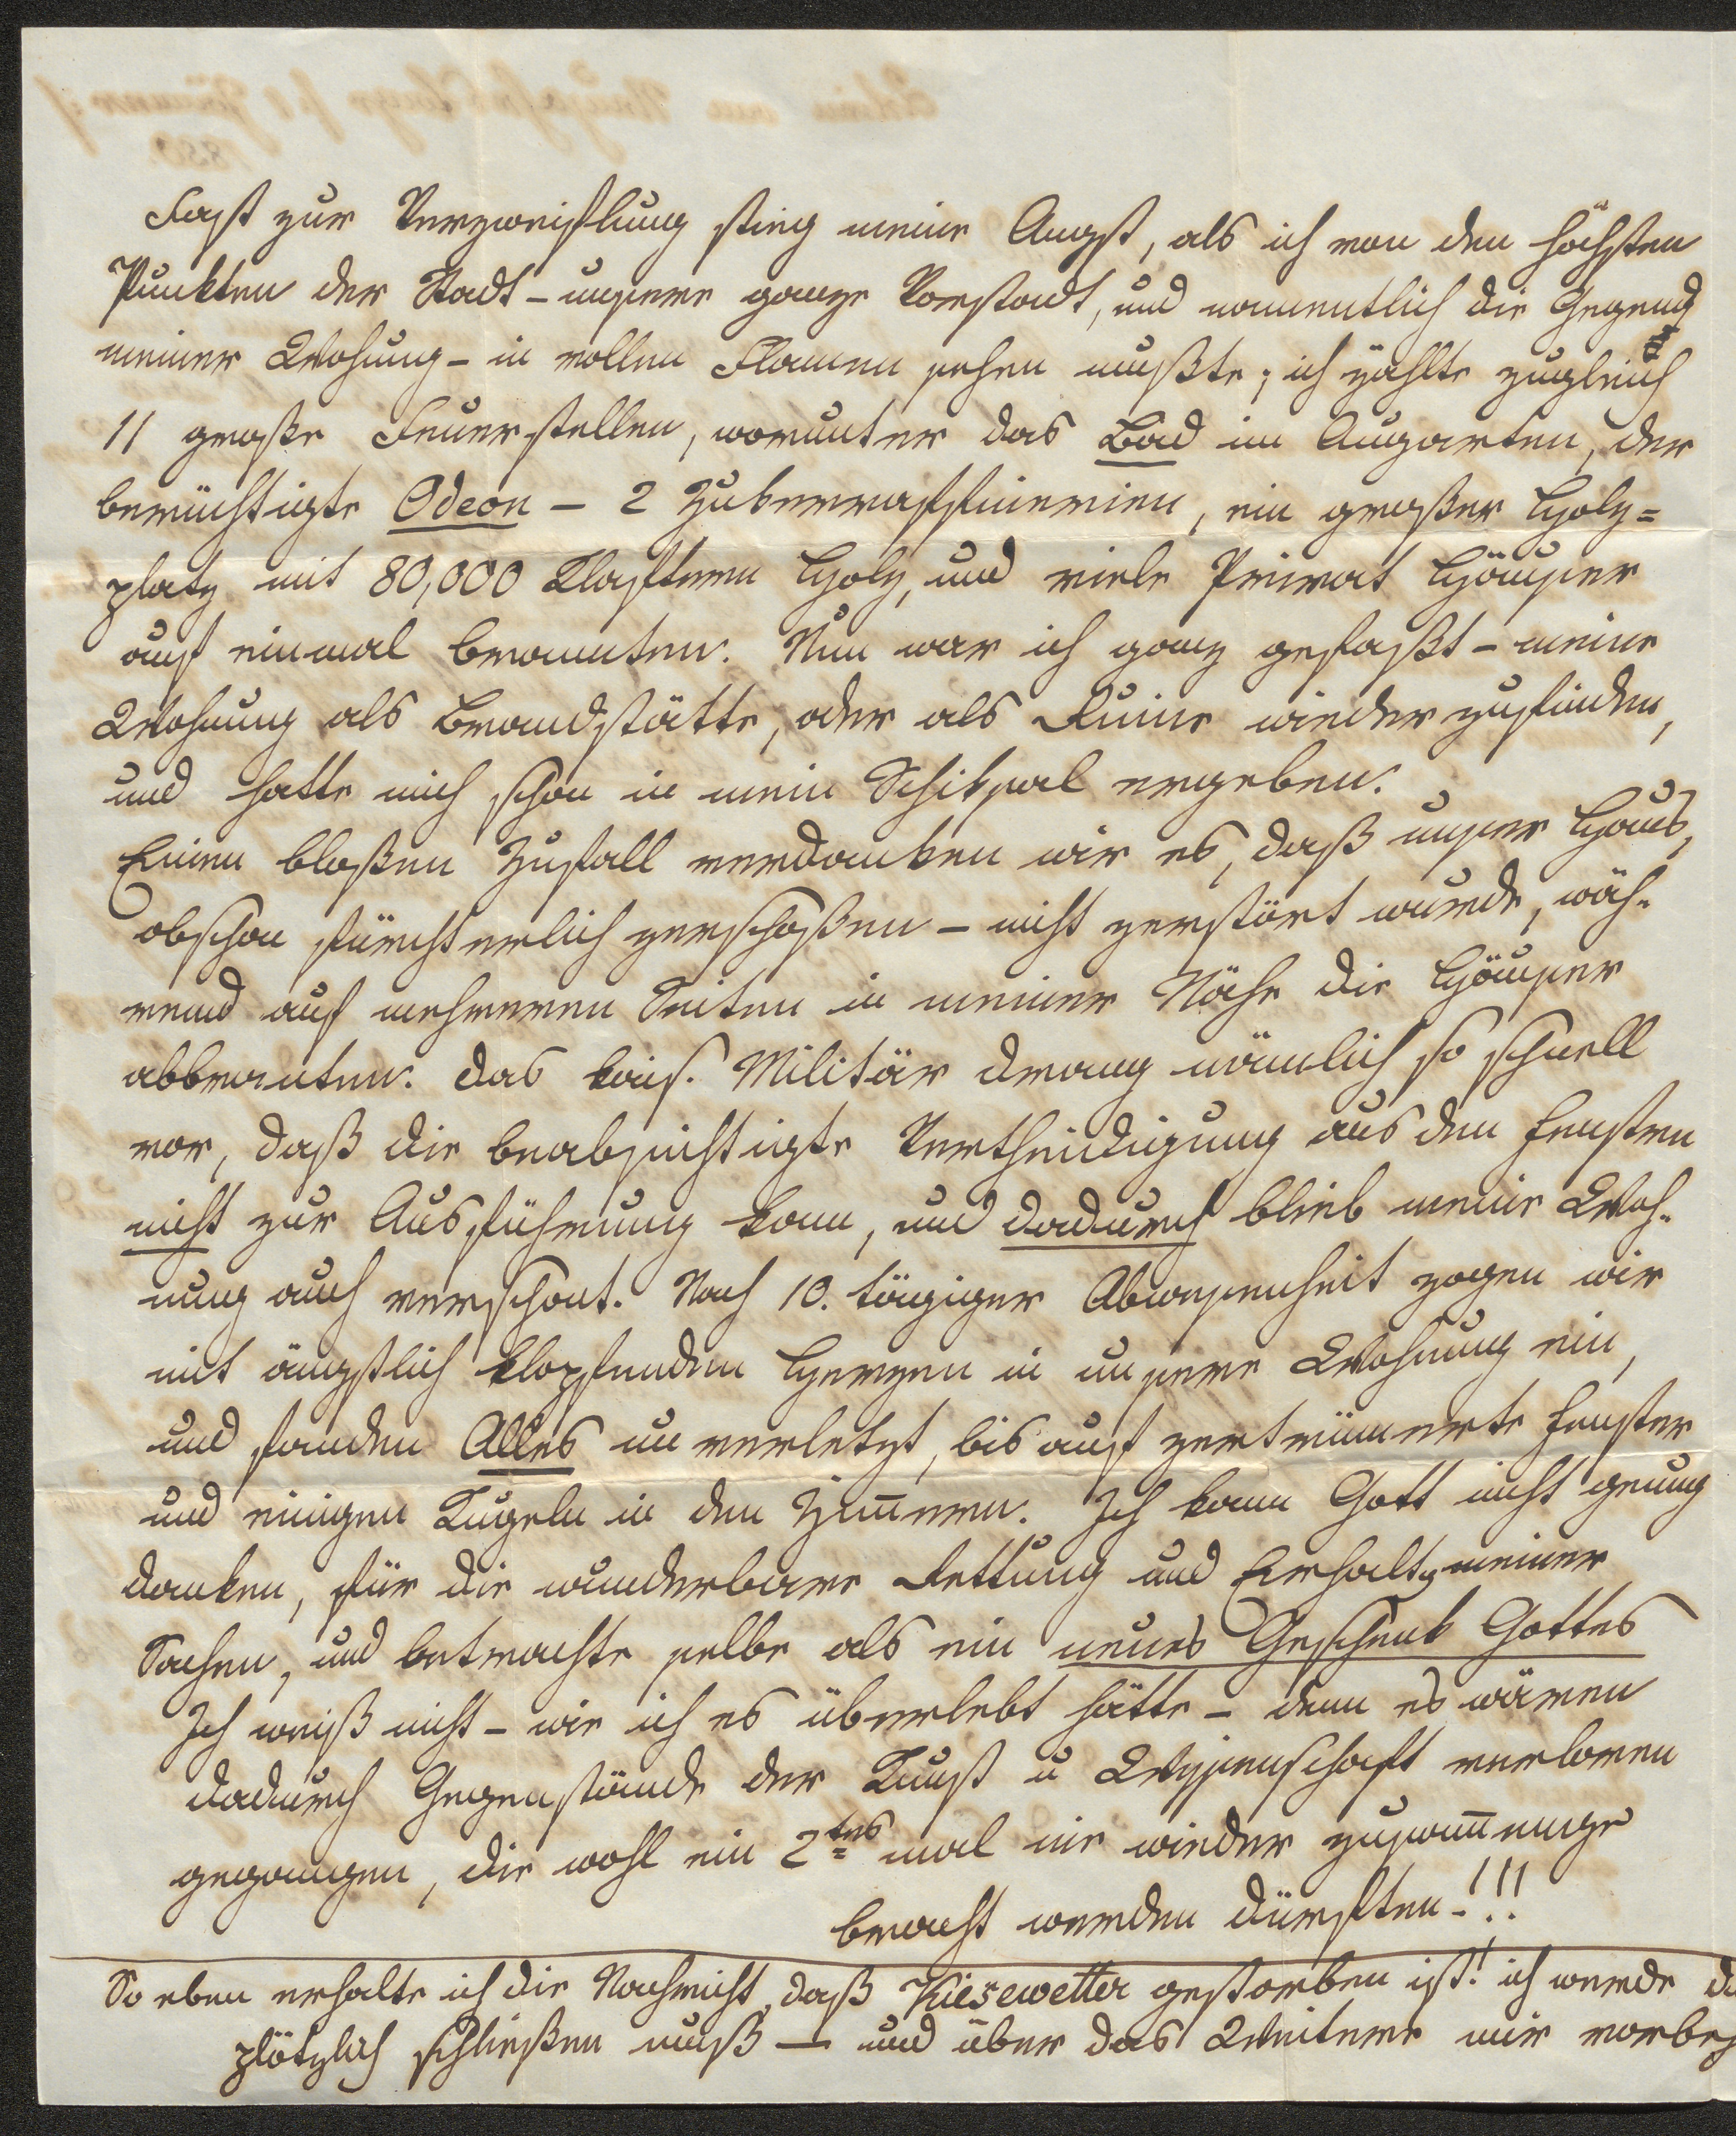 Fast zur Verzweiflung stieg meine Angst, als ich von den höchsten
Punkten der Stadt - unsere ganze Vorstadt, und namentlich die Gegend
meiner Wohung - in vollen Flamen sehen mußte; ich zählte zugleich
11 große Feuerstellen, worunter das Bad im Augarten, der
berüchtigte Odeon - 2 Zukerraffinerien, ein großer Holz=
platz mit 80,000 Klaftern Holz, und viele Privat Häuser
auf einmal brannten. Nun war ich ganz gefaßt - meine
Wohnung als Brandstätte, oder als Ruine wieder zufinden,
und hatte mich schon in mein Schiksal ergeben.
Einen bloßen Zufall verdanken wir es, daß unser Haus,
obschon fürchterlich zerschoßen - nicht zerstört wurde, wäh-
rend auf mehreren Seiten in meiner Nähe die Häuser
abbranten. Das kais. Militär drang nämlich so schnell
vor, daß die beabsichtigte Vertheidigung aus den Fenstern
nicht zur Ausführung kam, und dadurch blieb meine Woh-
nung auch verschont. Nach 10. tägiger Abwesenheit zogen wir
mit ängstlich klopfendem Herzen in unsere Wohnung ein,
und fanden Alles unverletzt, bis auf zertrümmerte Fenster
und einigen Kugeln in den Zim̅ern. Ich kann Gott nicht genug
danken, für die wunderbare Rettung und Erhaltg meiner
Sachen, und betrachte selbe als ein neues Geschenk Gottes
Ich weiß nicht - wie ich es überlebt hätte - denn es wären
dadurch Gegenstände der Kunst u Wissenschaft verloren
gegangen, die wohl ein 2tes mal nie wieder zusam̅enge
bracht werden dürften-!!!
So eben erhalte ich die Nachricht, daß Kiesewetter gestorben ist! ich werde da
plötzlich schließen muß — und über das Weitere mir vorbeh